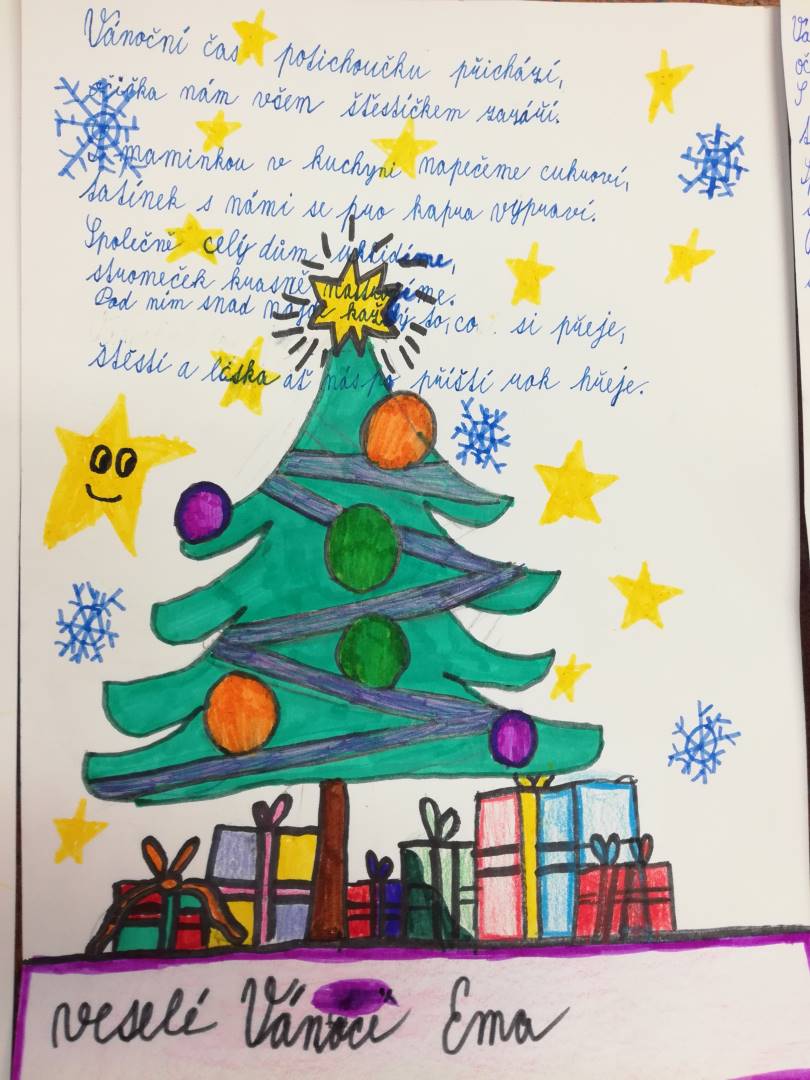 Vánoční čas potichoučku přichází,
očička nám všem štěstíčkem zazáří.
S maminkou v kuchyni napečeme cukroví,
tatínek s námi se pro kapra vypraví.
Společně celý dům uklidíme,
stromeček krasně nastrojíme.
Pod ním snad najde každý to, co si přeje,
štěstí a láska ať nás po příští rok hřeje.
veselé Vánoce Ema
Vá
oč
S